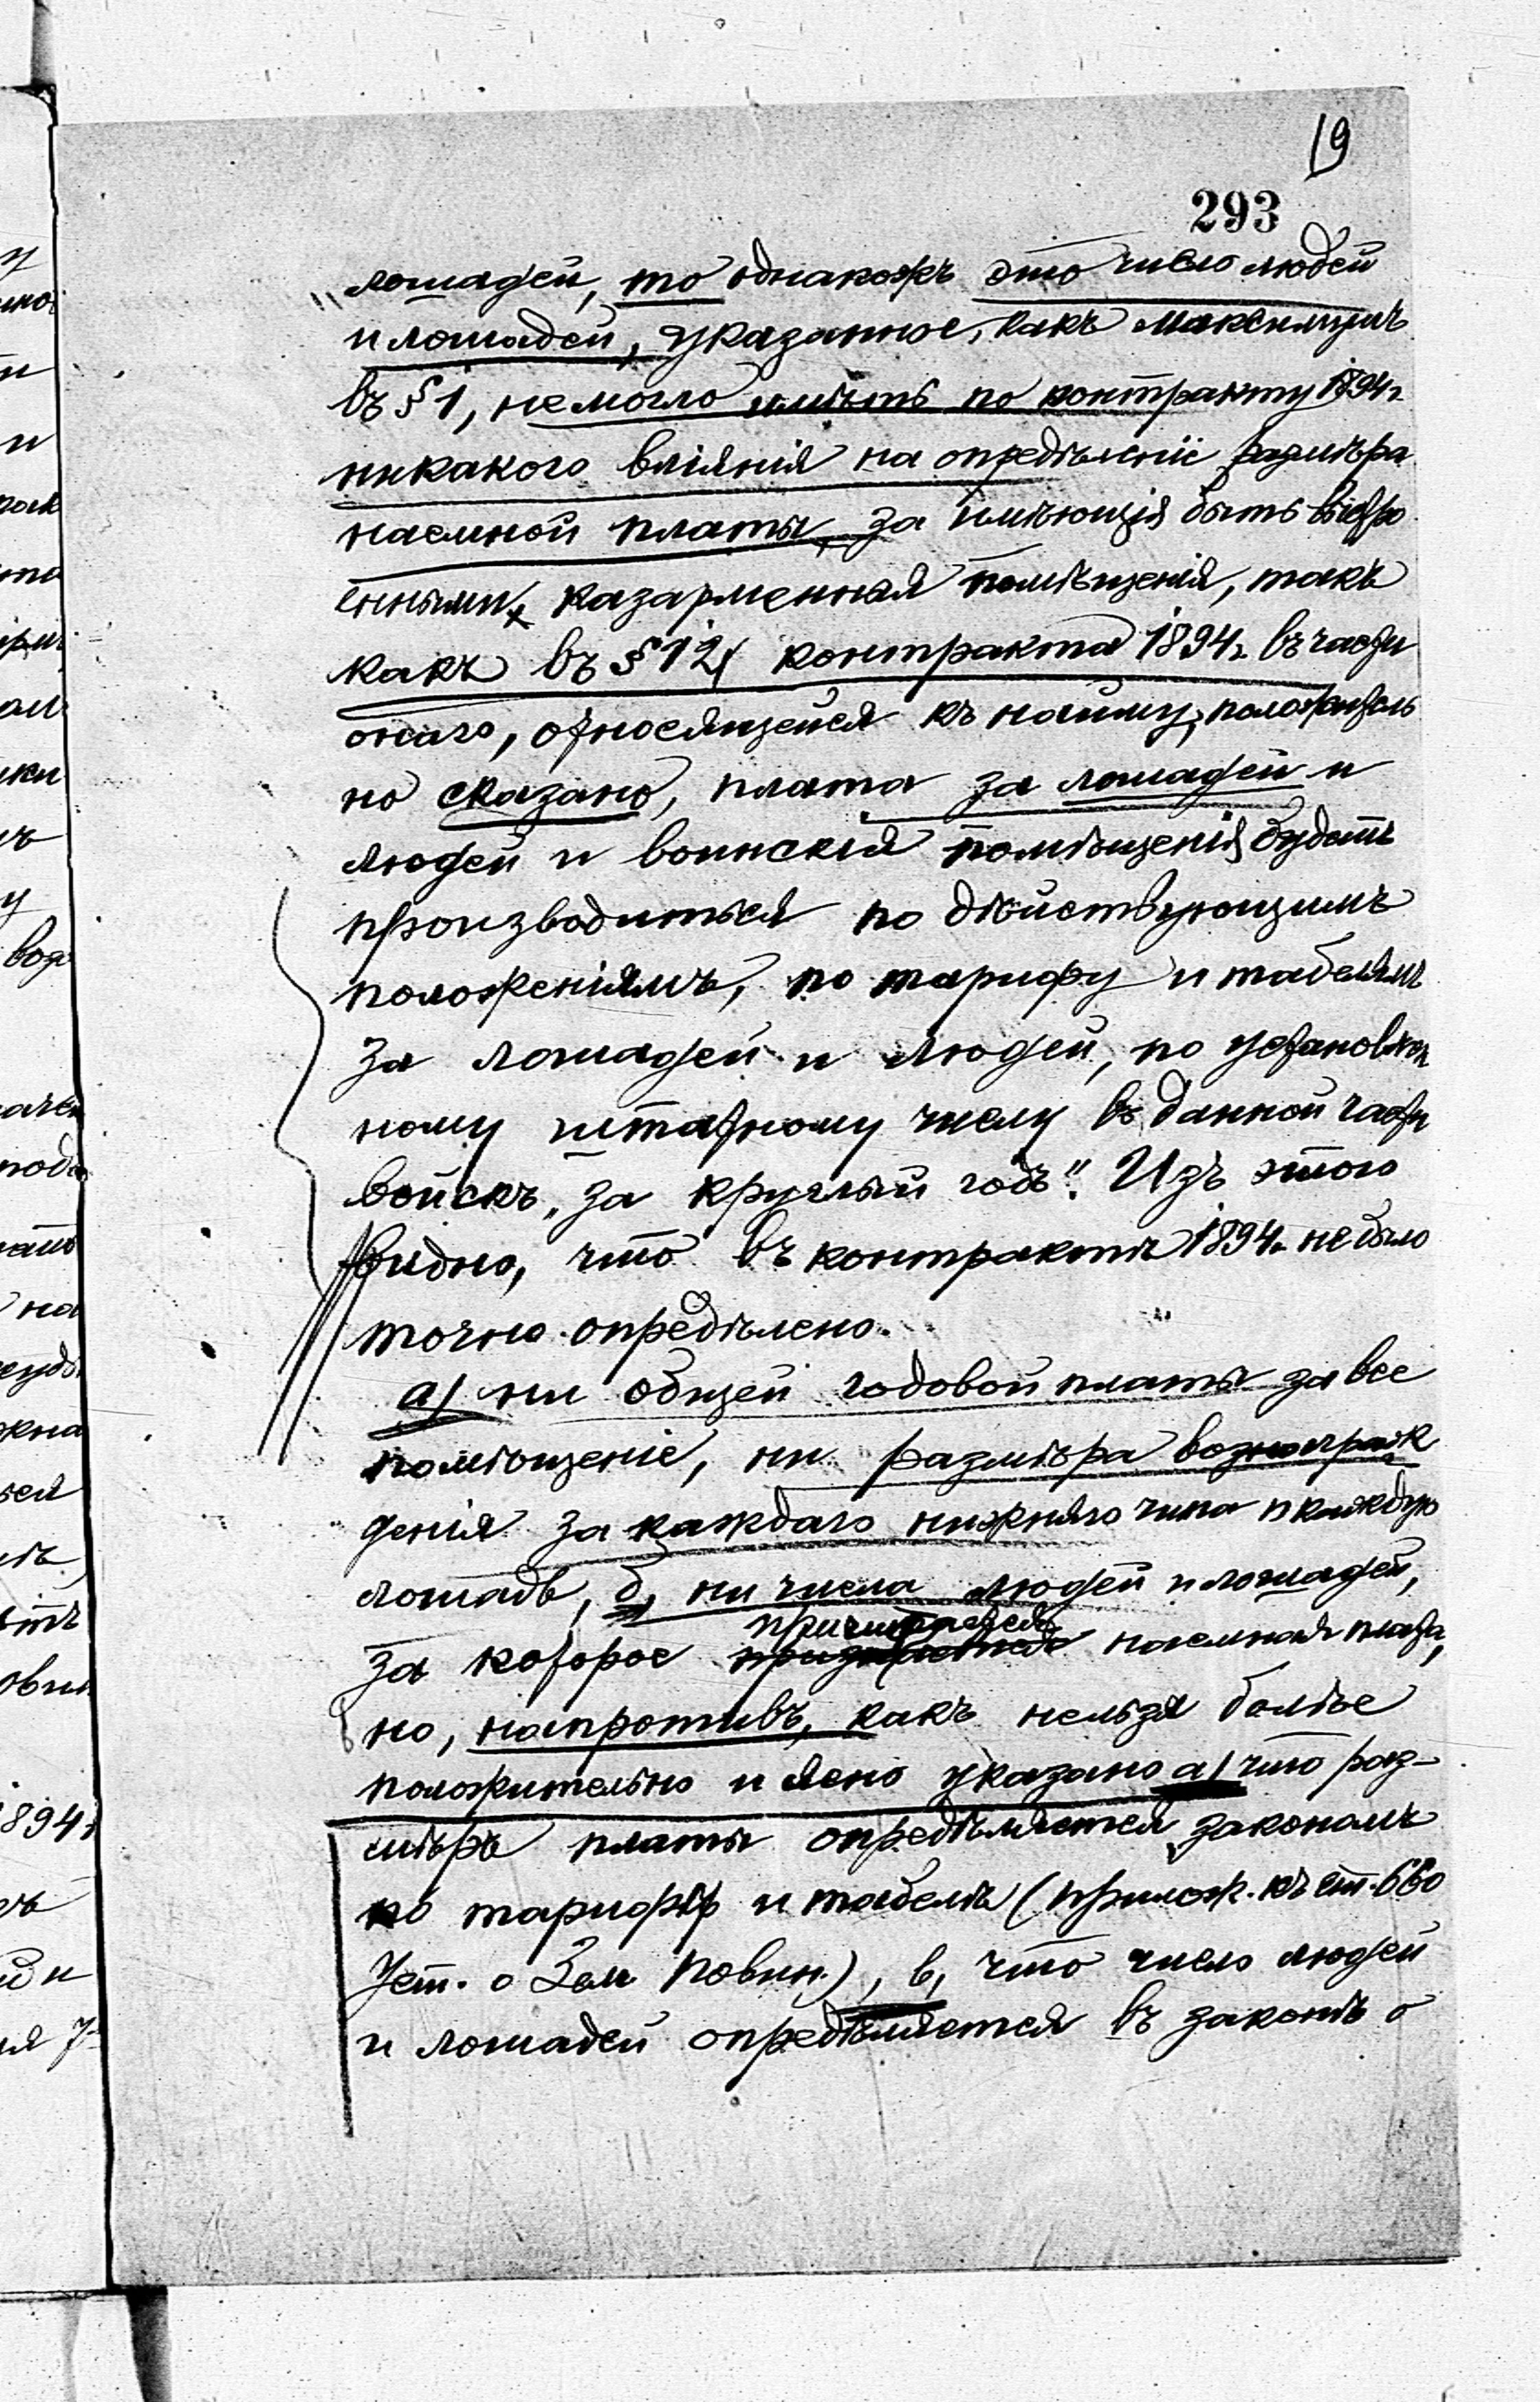 19
293
лошадей, то однакожъ это число людей
и лошадей, указанное, какъ максимумъ
въ § 1, не могло имѣть по контракту 1894 г.
никакого вліянія на опредѣленіе размѣра
наемной платы, за имѣющія быть выстро
енными казарменныя помѣщенія, такъ
какъ въ § 12 контракта 1894 г. въ части
онаго, относящейся къ найму, положитель
но сказано, плата за лошадей и
людей и воинскія помѣщенія будетъ
производиться по дѣйствующимъ
положеніямъ, по тарифу и табелямъ
за лошадей и людей, по установлен
ному штатному числу въ данной части
войскъ, за круглый годъ". Изъ этого
видно, что въ контрактѣ 1894 г. не было
точно опредѣлено.
а) ни общей годовой платы за все
помѣщеніе, ни размѣра вознаграж
денія за каждаго нижняго чина и каждую
лошадь, б, ни числа людей и лошадей,
причитается
за которое наемная плата,
но, напротивъ, какъ нельзя болѣе
положительно и ясно указано а) что раз-
мѣръ платы опредѣляется закономъ
по тарифу и табели (прилож. къ ст. 660
Уст. о Зем. Повин.), в, что число людей
и лошадей опредѣляется въ законѣ о